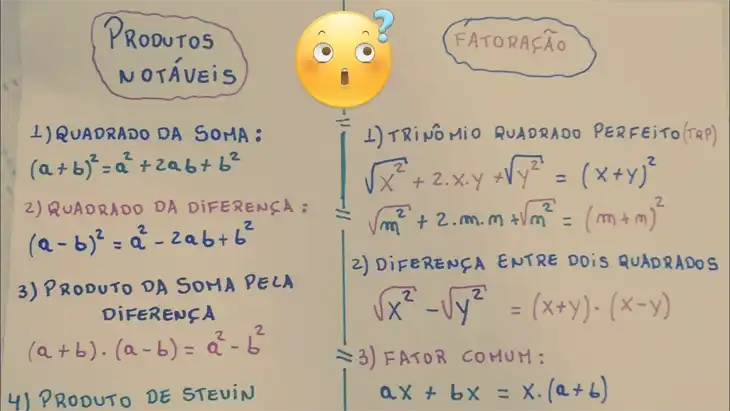 PRODUTOS
NOTÁVEIS
1) QUADRADO DA SOMA:
(a+b)²=a²+2ab+b²
2) QUADRADO DA DIFERENÇA:
(a-b)²=a²-2ab+b²
3) PRODUTO DA SOMA PELA
DIFERENÇA
(a+b).(a-b)=a²-b²
4) PRODUTO DE STEVIN
?
FATORAÇÃO
1) TRINÔMIO QUADRADO PERFEITO (TQP)
√x² + 2.x.y + √y² = (x+y)²
√m² + 2.m.m + √m² = (m+m)²
2) DIFERENÇA ENTRE DOIS QUADRADOS
√x² - √y² = (x+y).(x-y)
3) FATOR COMUM:
ax + bx = x.(a+b)